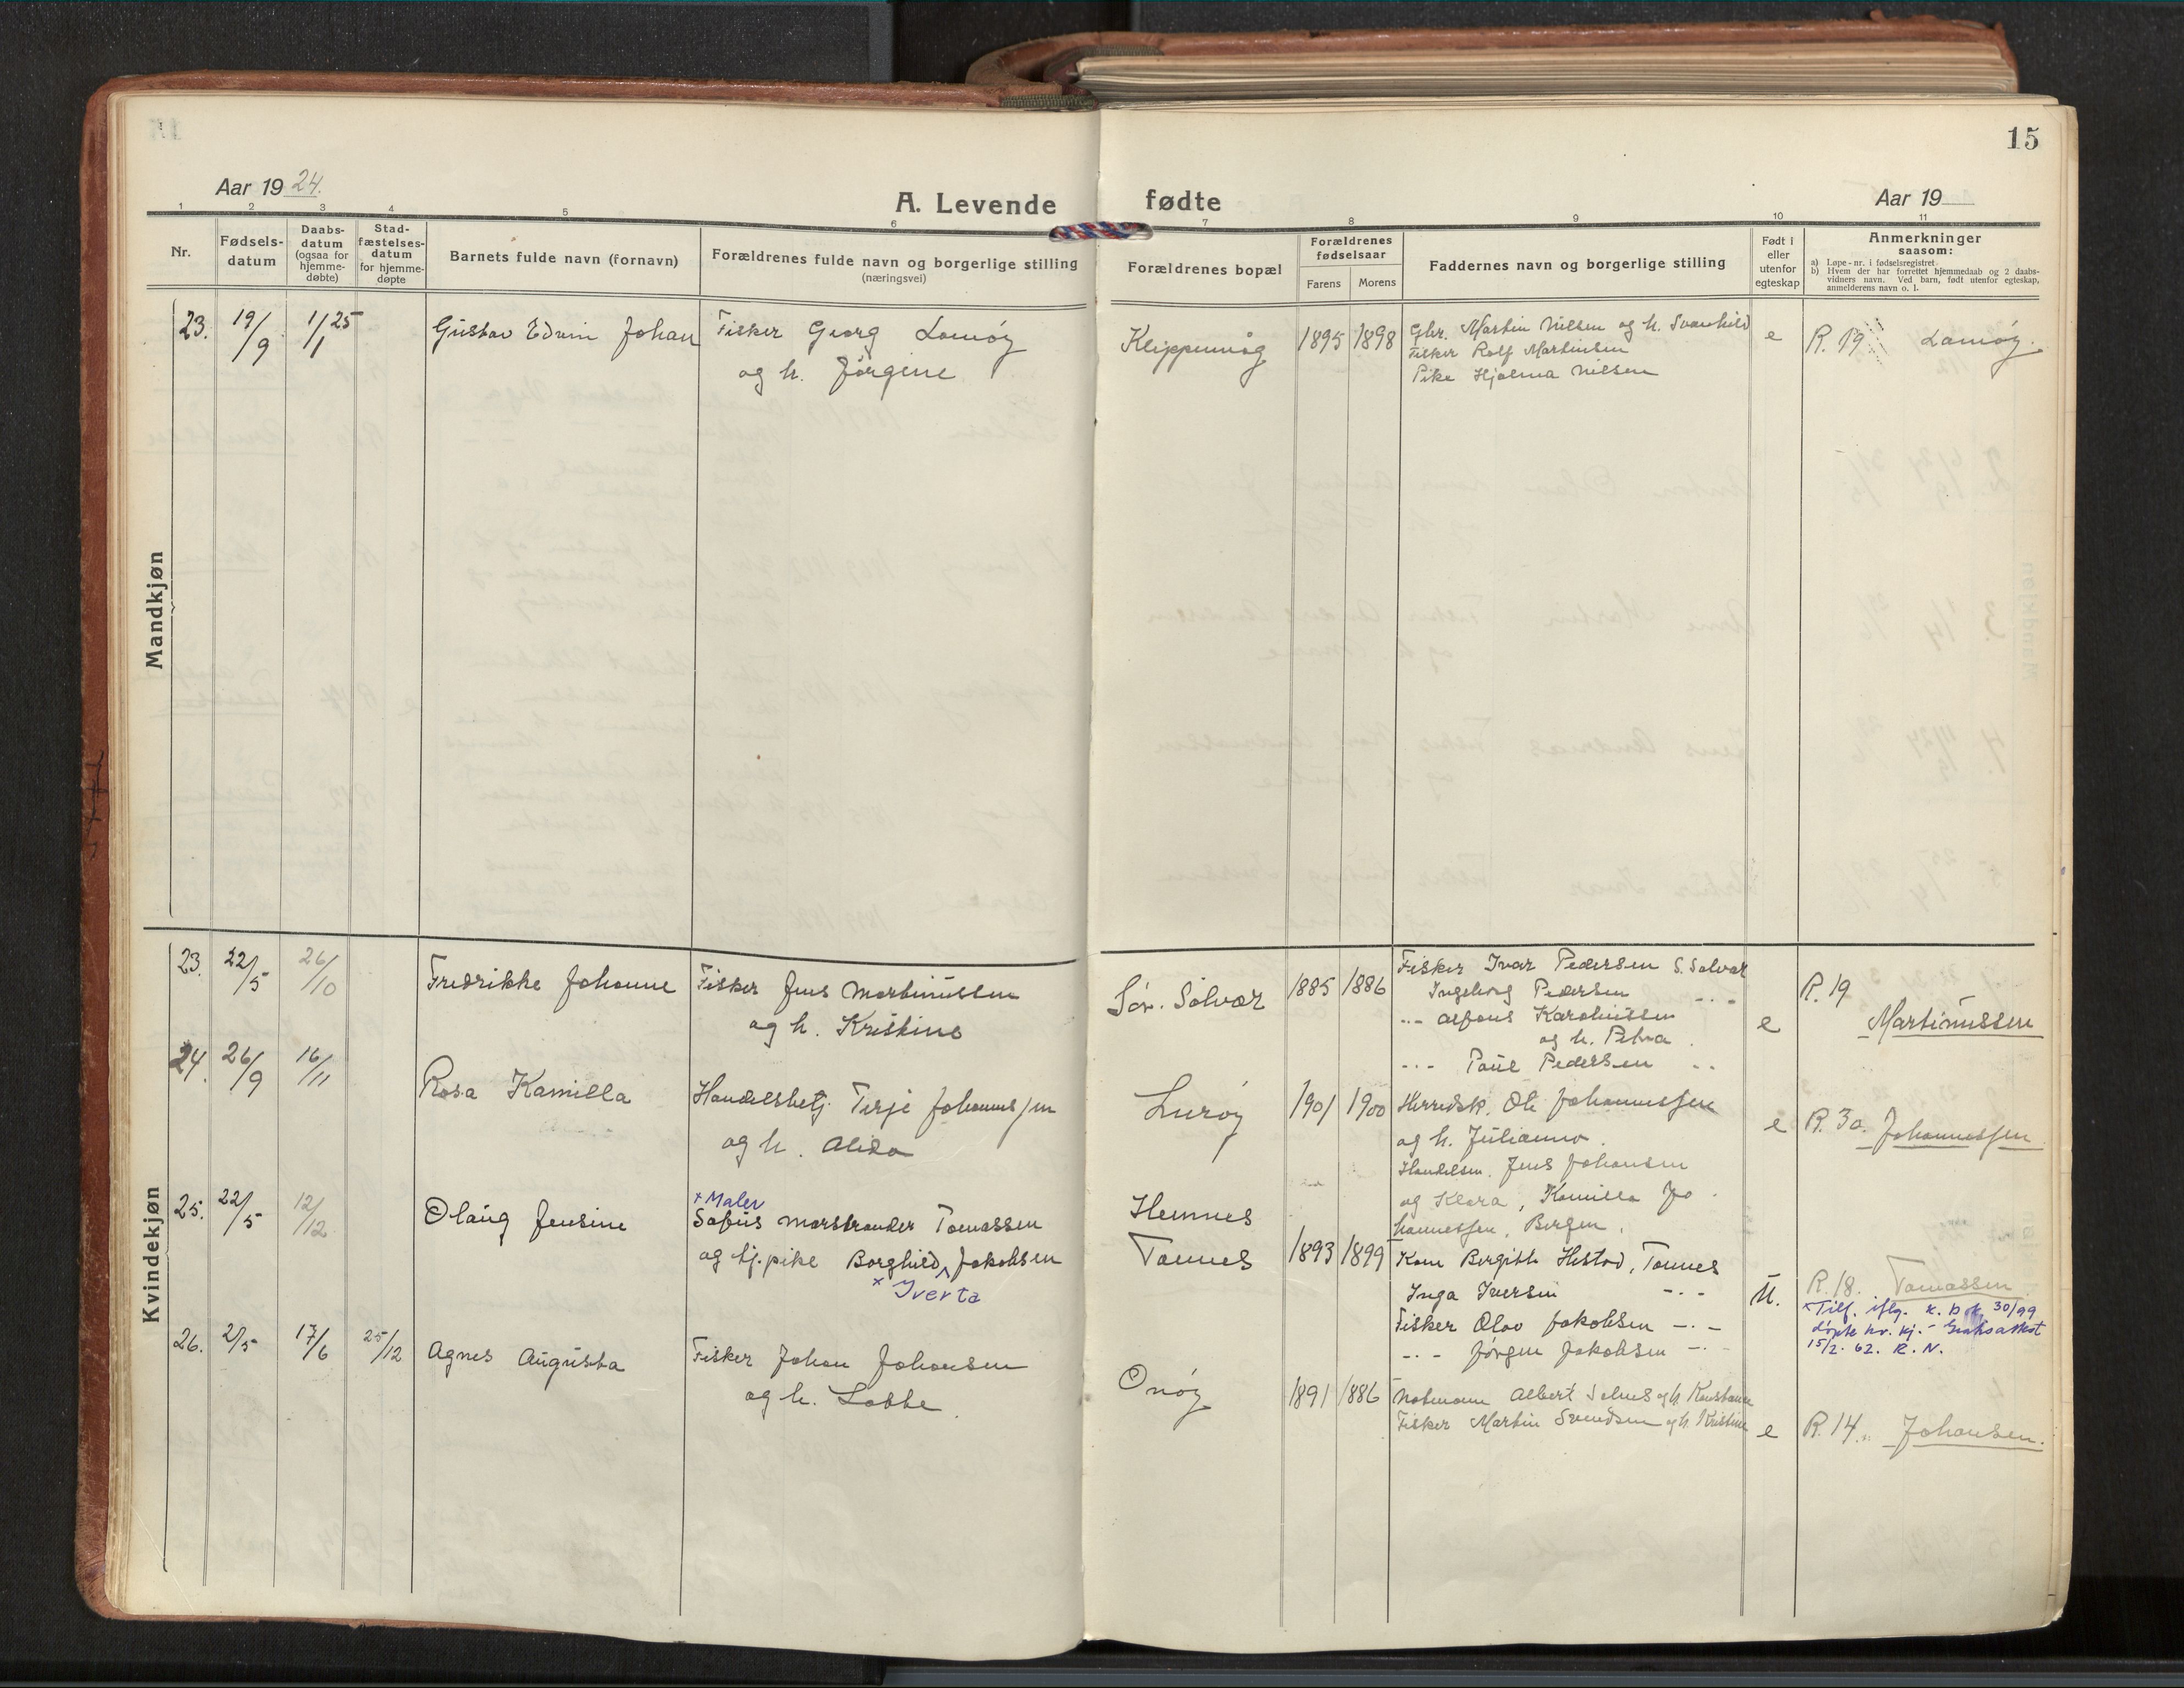 15
Aar 1924.
A. Levende fødte
Aar 19
1 2 3 4 5 6 7 8 9 10 11
Nr.
Fødsels-
datum
Daabs-
datum
(ogsaa for
hjemme-
døbte)
Stad-
fæstelses-
datum
for hjemme-
døpte
Barnets fulde navn (fornavn)
Forældrenes fulde navn og borgerlige stilling
(næringsvei)
Forældrenes bopæl
Forældrenes
fødselsaar
Farens Morens
Faddernes navn og borgerlige stilling
Født i
eller
utenfor
egteskap
Anmerkninger
saasom:
a) Løpe-nr. i fødselsregistret
b) Hvem der har forrettet hjemmedaab og 2 daabs-
vidners navn. Ved barn, født utenfor egteskap,
anmelderens navn o. l.
Mandkjøn
23. 19/9 1/1 25 Gustav Edvin Johan
Fisker Georg Lamøy
og h. Jørgine
Klippenvåg
1895 1898
Gbr. Martin Nilsen og h. Svanhild
Fisker Rolf Martinsen
Pike Hjalma Nilsen
e
R. 19 Lamøy.
Kvindekjøn
23. 22/5 26/10 Fredrikke Johanne
Fisker Jens Martinussen
og h. Kristine
Sør. Solvær
1885 1886
Fisker Ivar Pedersen S. Solvær
Ingeborg Pedersen -..-
-..- Alfons Karolinssen
og h. Petra
-..- Paul Pedersen -..-
e
R. 19
Martinussen
24. 26/9 16/11 Rosa Kamilla
Handelsbetj. Terje Johannessen
og h. Alida
Lurøy
1901 1900
Herredsk. Ole Johannessen
og h. Julianna.
Handelsm. Jens Johansen
og Klara, Kamilla Jo
hannessen, Bergen.
e
R. 30. Johannessen
25. 22/5 12/12 Olaug Jensine
x Maler
Sofus Marstrander Tomassen
og tj. pike Borghild Jakobsen
x Iverta
Hemnes
Tonnes
1893 1899
Kone Bergitte Hestad, Tonnes
Inga Iversen -..-
Fisker Olav Jakobsen -..-
-..- Jørgen Jakobsen -..-
U.
R. 18. Tomassen
x Tilf. iflg. K. D. 30/99
døpte kv. kj. -
15/2. 62. R. N.
26. 2/5 17/6 25/12 Agnes Augusta
Fisker Johan Johansen
og h. Lobbe.
Onøy
1891 1886
Notmann Albert Selnes og h. Konstanse
Fisker Martin Svendsen og h. Kristine
e
R. 14. Johansen.